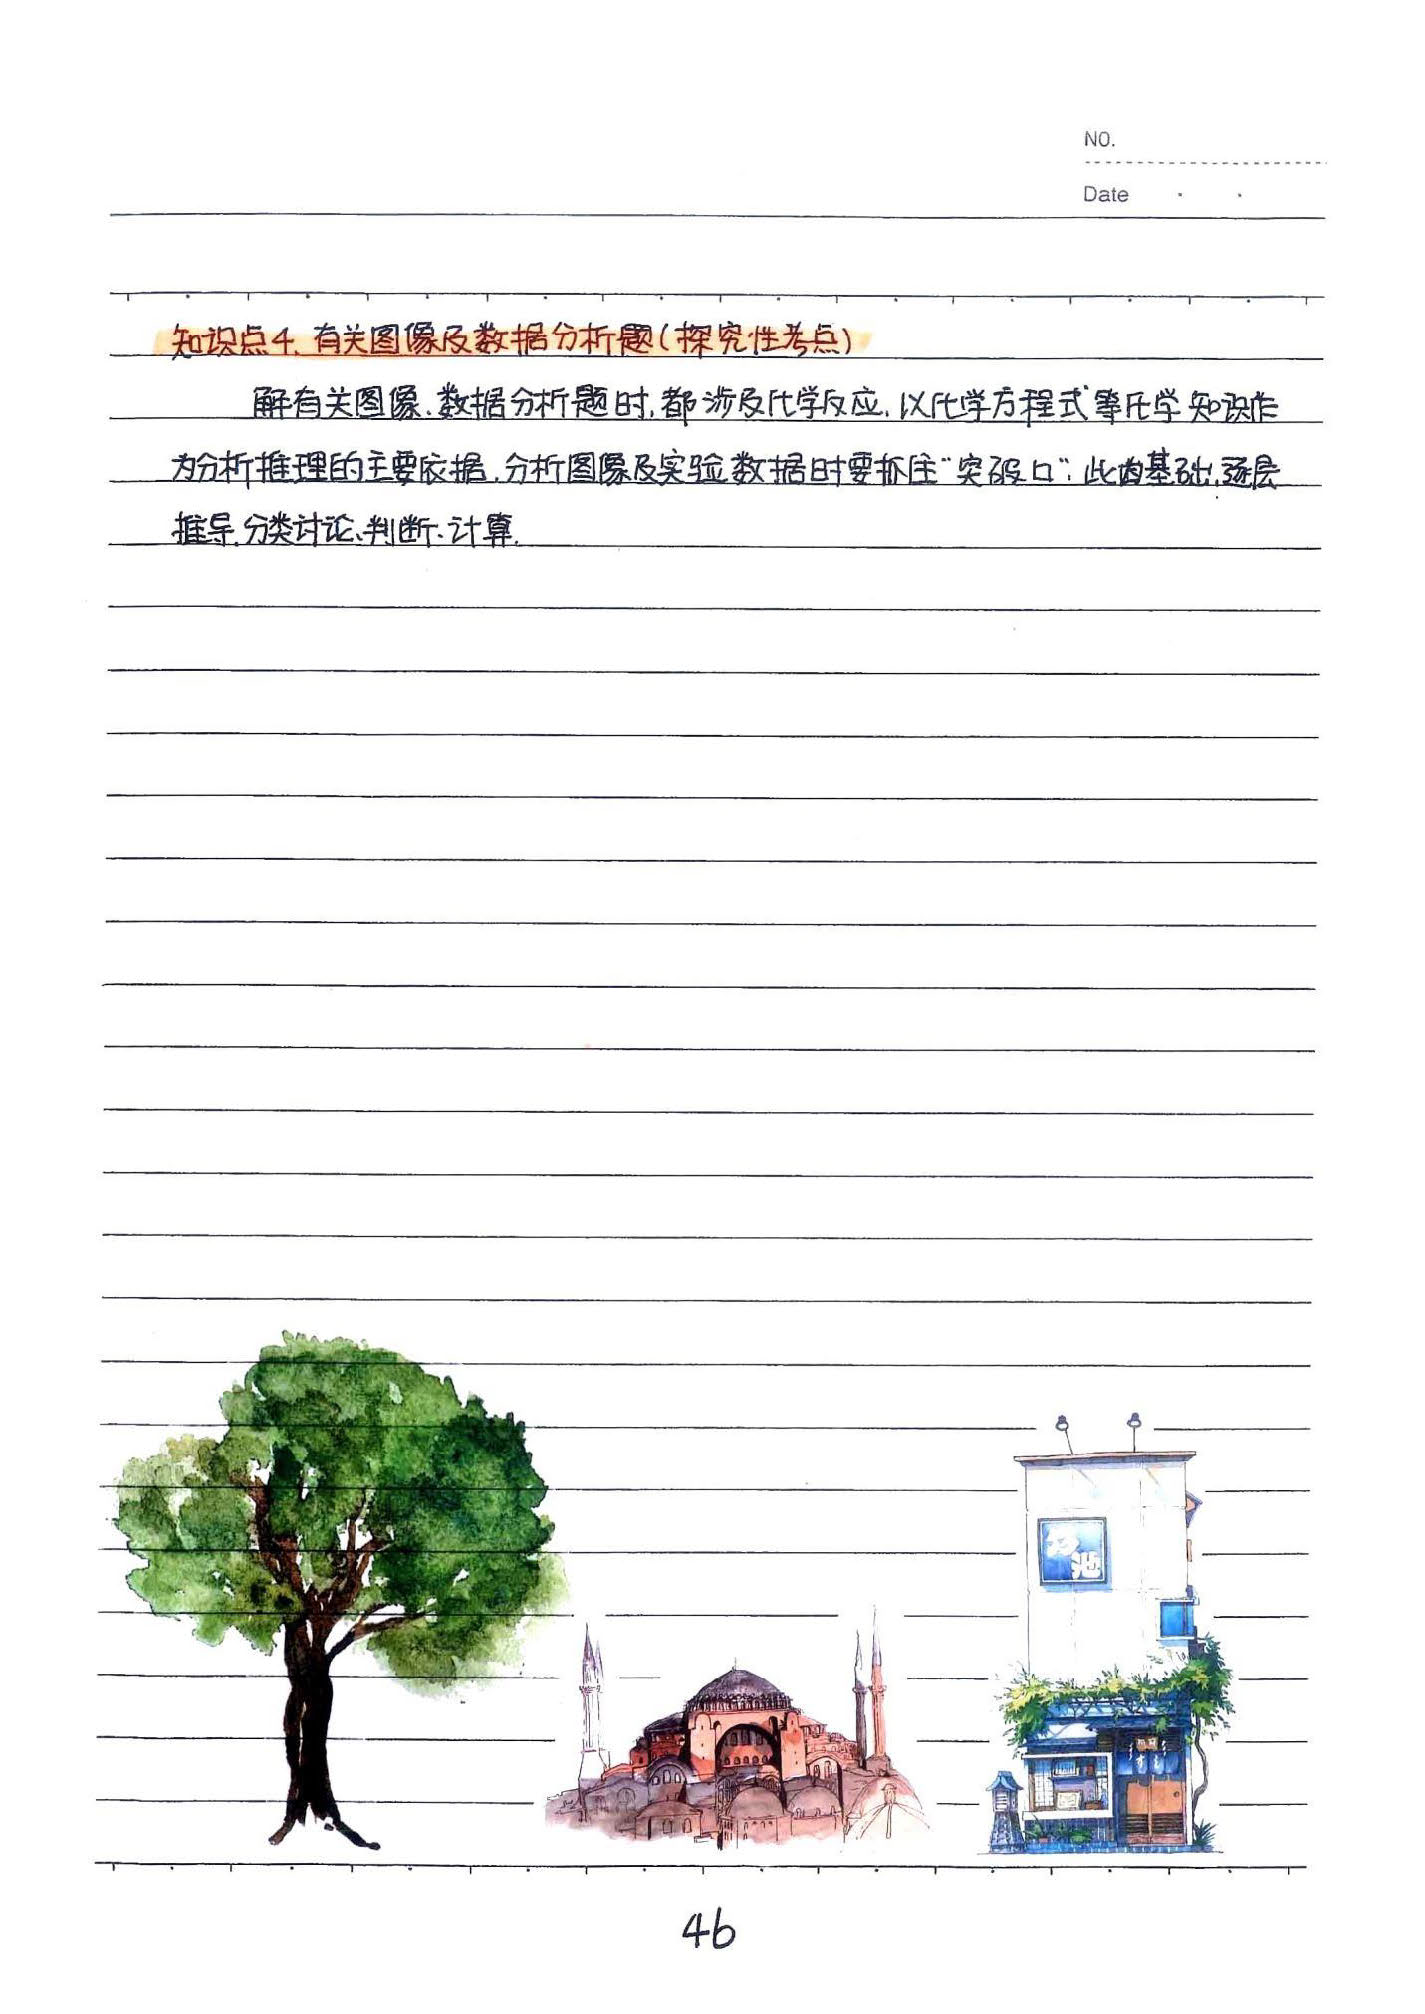 NO.
Date
知识点4. 有关图像及数据分析题(探究性考点)
解有关图像、数据分析题时,都涉及化学反应,以化学方程式等化学知识作
为分析推理的主要依据,分析图像及实验数据时要抓住“突破口”,此为基础,逐层
推导,分类讨论、判断、计算.
46